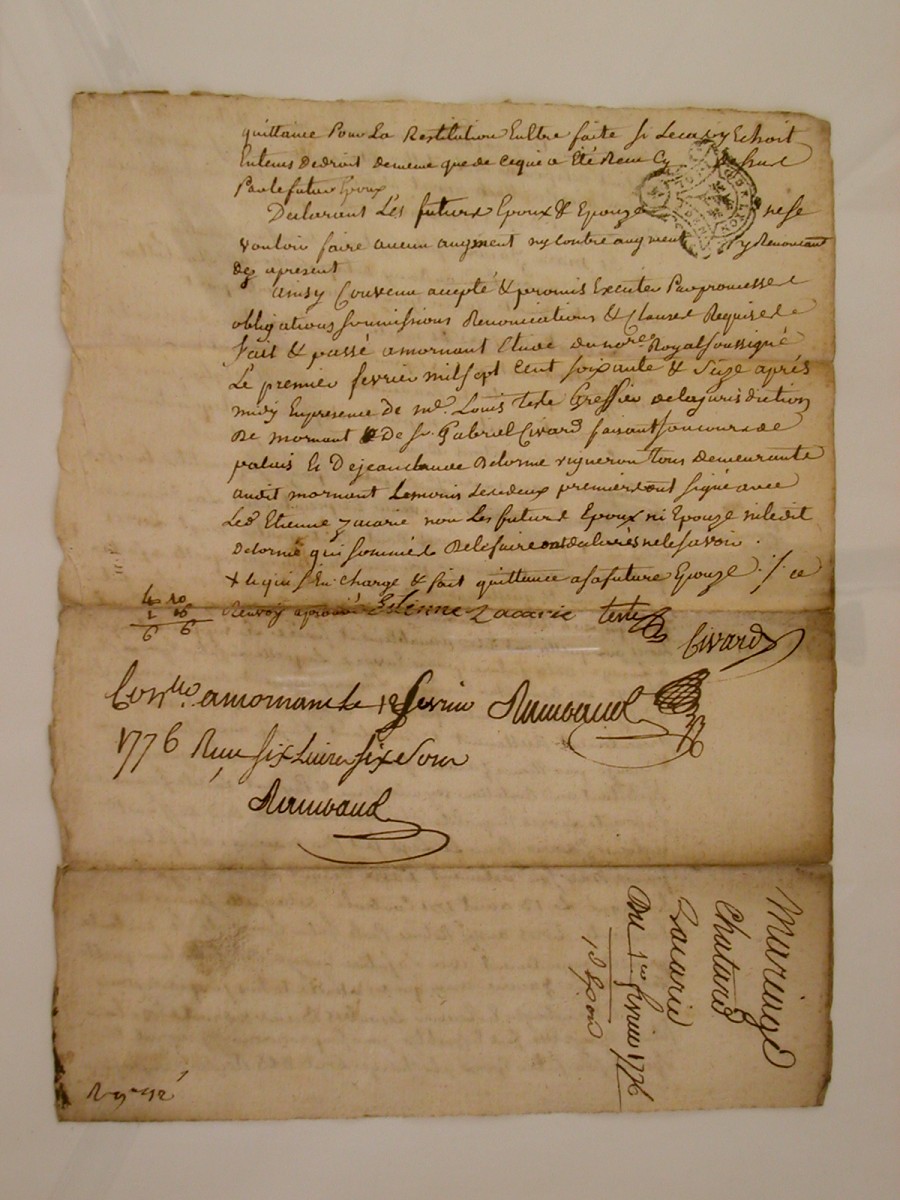 quittance Pour La Restitution En Etre faite sy Le cas y Echoit
En tems de droit de meme que de ce qui a Eté Reçu Cy dessus
Par le futur Epoux
Declarant Les futurs Epoux & Epouze ne se
vouloir faire aucun augment ny contre augment y Renoncant
des apresent
ainsy Convenu accepté & promis Executer Par promesses
obligations soumissions Renonciations & Clauses Requises
fait & passé a mornant Etude du nore. Royal soussigné
Le premier fevrier mil sept Cent soixante & Seize après
midy En presence de me. Louis teste Greffier de la jurisdiction
De mornant & De sr. Gabriel Civard faisant son cours de
palais Et De jean claude Delorme vigneron tous demeurants
audit mornant temoins Les deux premiers ont signé avec
Led Etienne Zacarie non Les futurs Epoux ni Epouze ni ledit
Delorme qui sommés De le faire ont declarés ne le savoir.
+ le qui s'En charge & fait quittance a sa future Epouze ./. ce
Renvoy aprouvé Etienne Zacarie teste
Civard
Conllé. a mornant le 18 fevrier
1776 Reçu six Livres six sous
Mariage
Chatard
Zacarie
Du 1er fevrier 1776